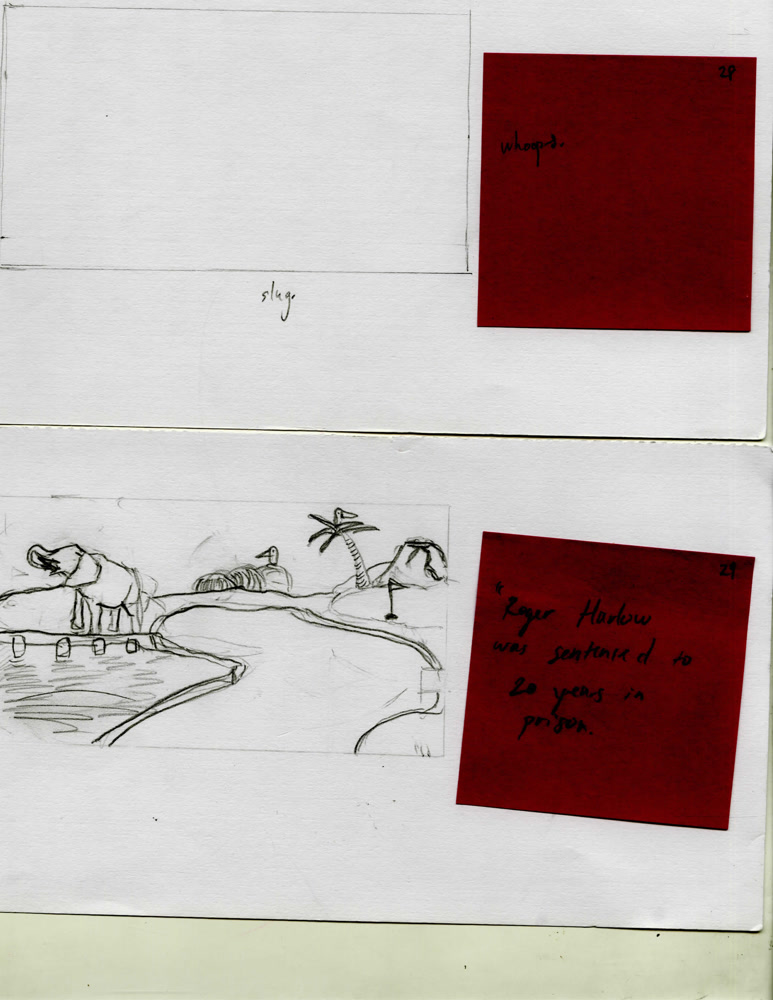 28
whoops.
slug.
29
"Roger Harlow
was sentenced to
20 years in
prison.